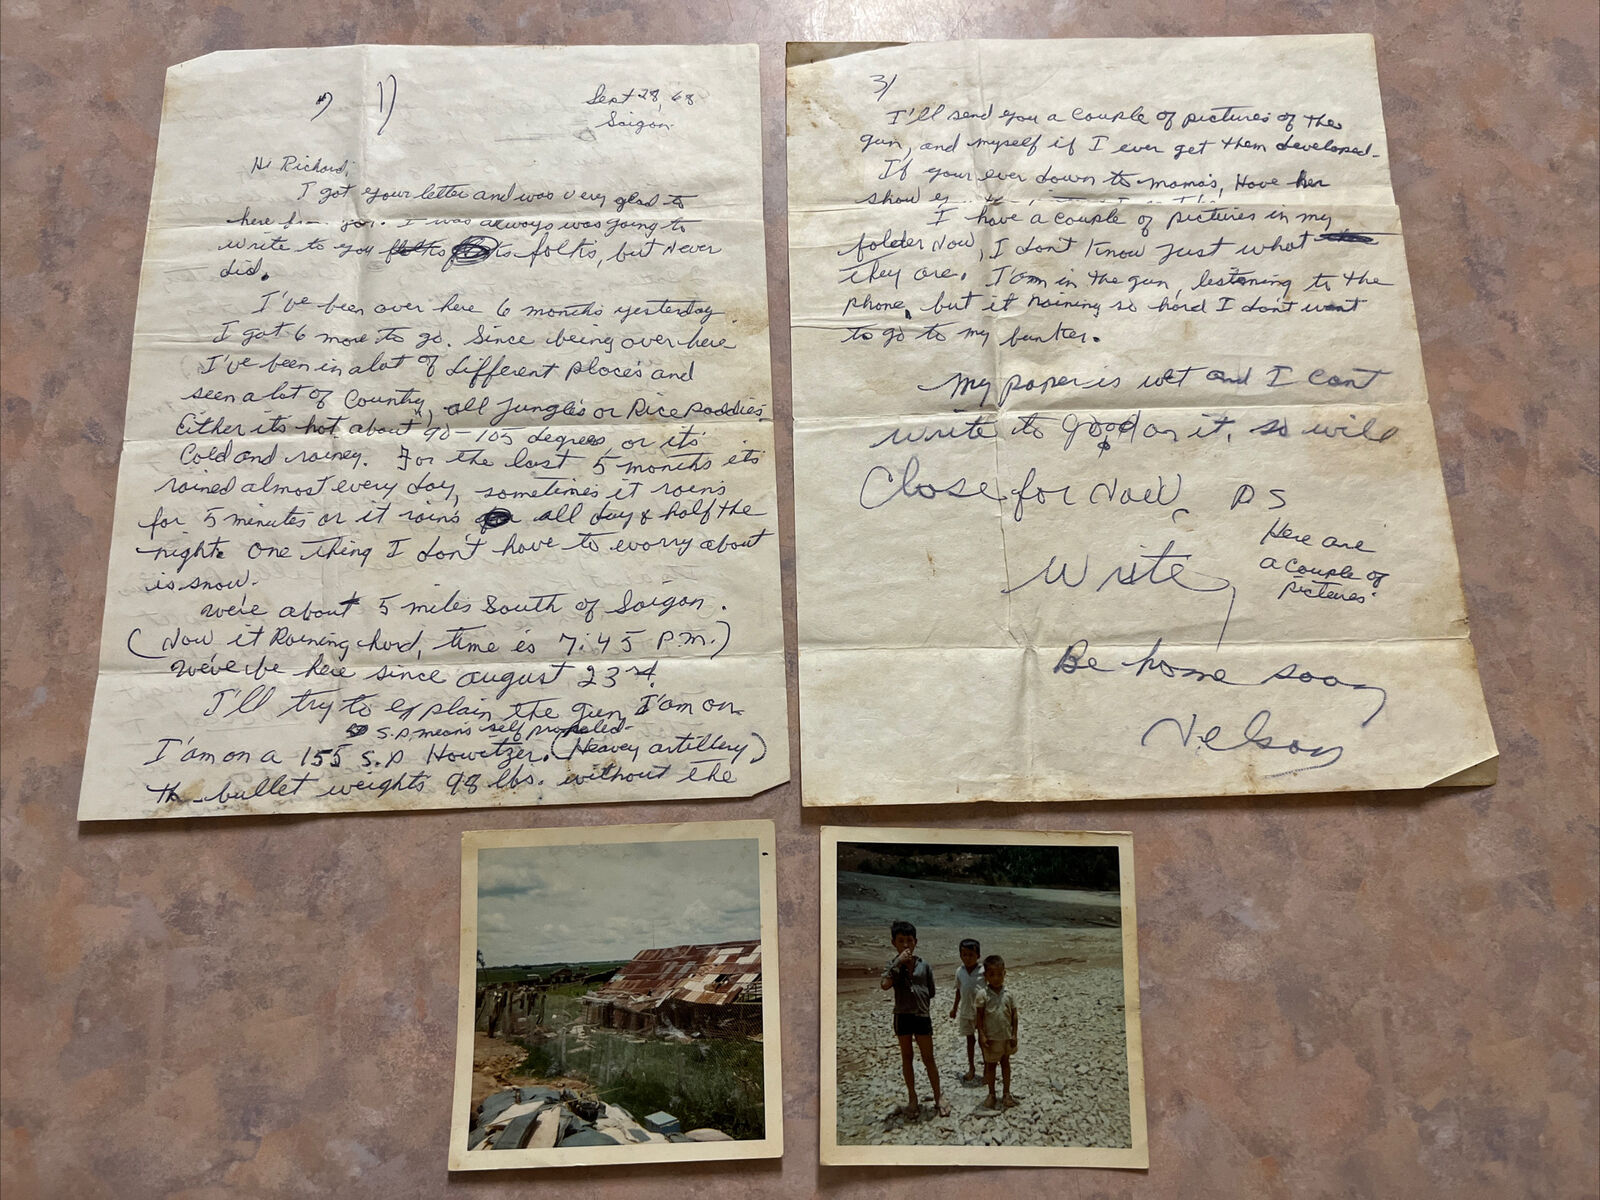 1)
Sept 28, 68
Saigon
Hi Richard,
I got your letter and was very glad to
here you. I was always was going to
write to you folks, but Never
did.
I've been over here 6 months yesterday
I got 6 more to go. Since being over here
I've been in alot of different places and
seen a lot of Country, all Jungles or Rice Paddies.
Either its hot about 90-105 degrees, or its
Cold and rainey. For the last 5 months its
rained almost every day, sometimes it rains
for 5 minutes or it rains all day & half the
night. One thing I don't have to worry about
is snow.
we're about 5 miles South of Saigon.
(Now it Raining hard, time is 7:45 P.M.)
We've be here since august 23rd.
I'll try to explain the gun I'am on
S.P. means self propeled
I'am on a 155 S.P Howitzer. (Heavey artillery)
The bullet weights 98 lbs. without the
3/
I'll send you a couple of pictures of the
gun, and myself if I ever get them developed.
If your ever down to mama's, Have her
show
I have a couple of pictures in my
folder Now, I don't Know Just what
they are. I'am in the gun, lestening to the
phone, but it Raining so hard I don't want
to go to my bunker.
My paper is wet and I can't
write to good on it, so will
Close for Now,
PS
Here are
a couple of
Pictures.
Write,
Be home soon,
Nelson